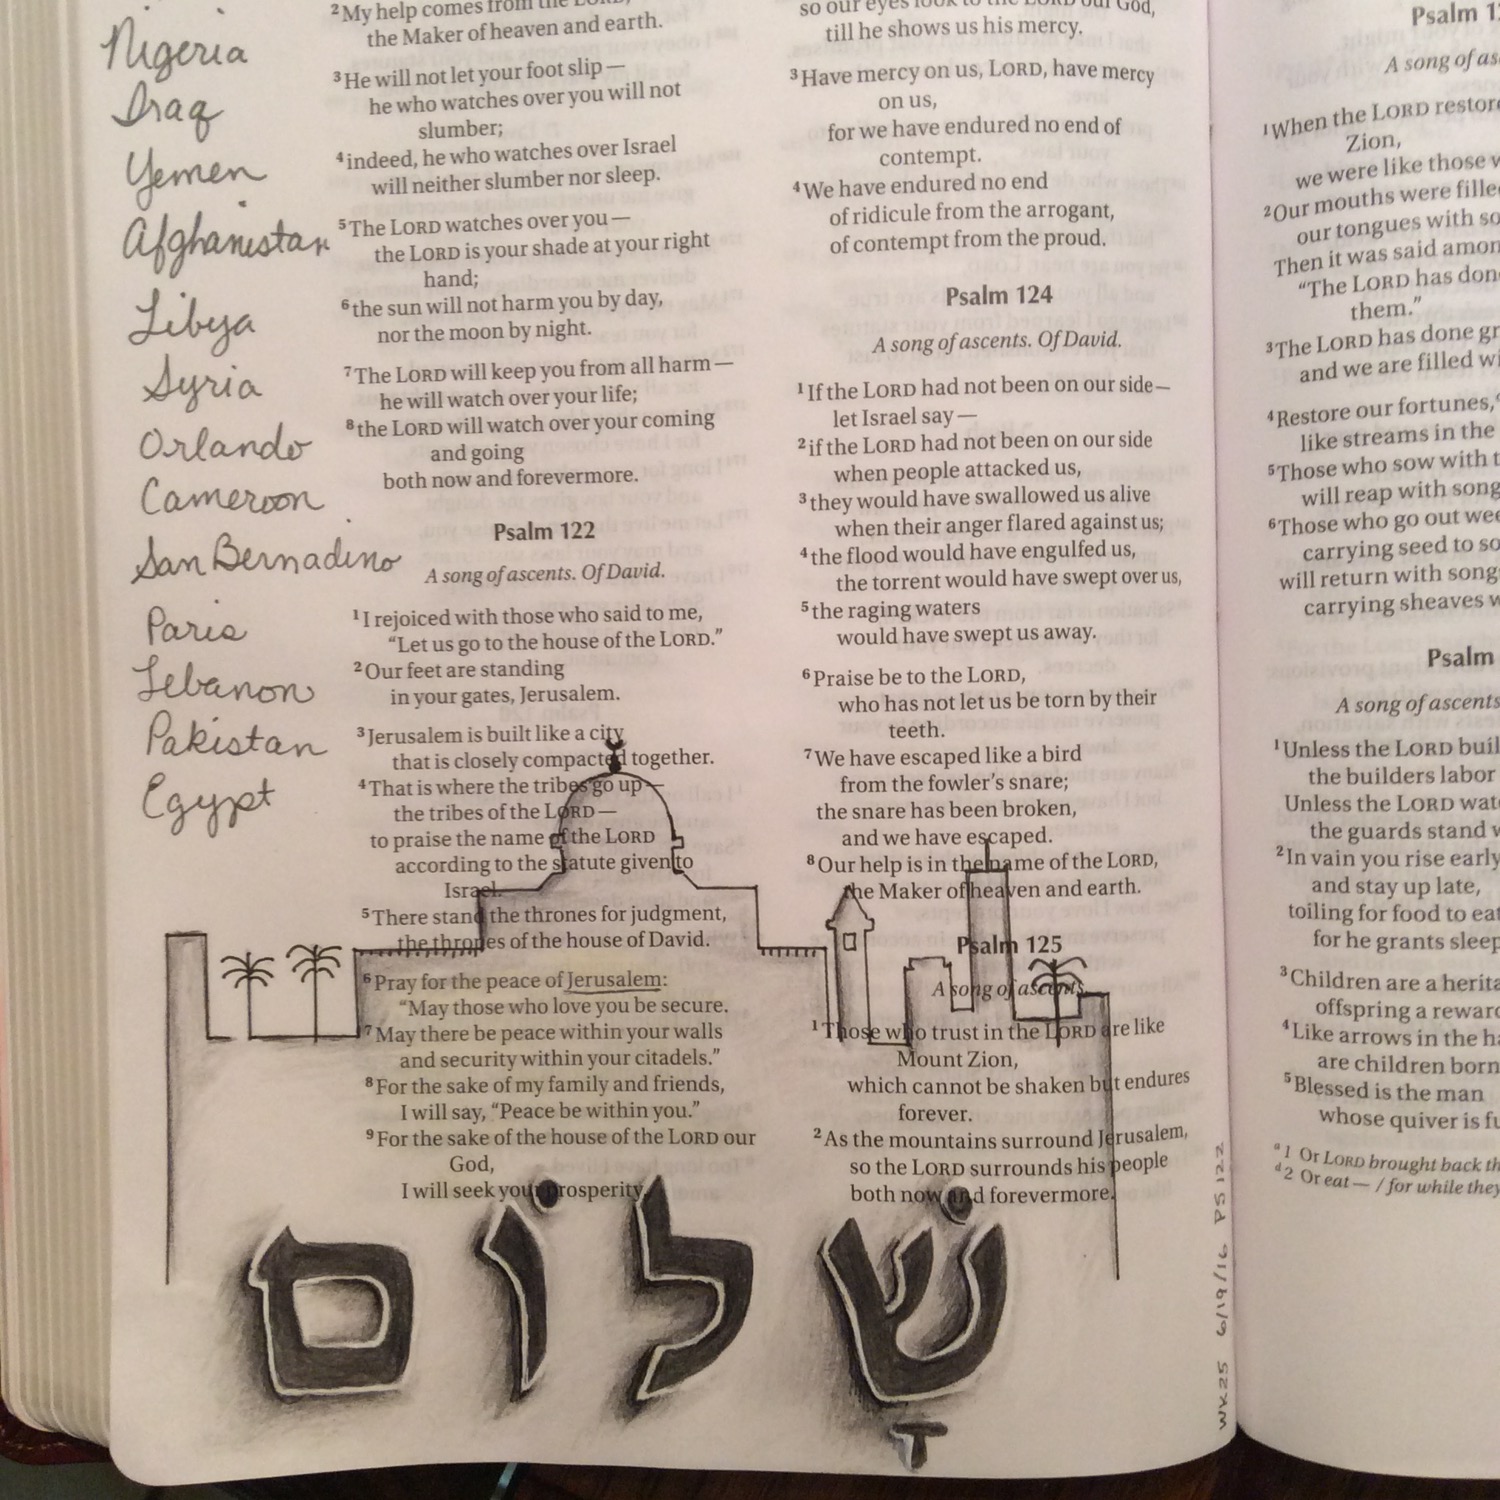 Nigeria
Iraq
Yemen
Afghanistan
Libya
Syria
Orlando
Cameroon
San Bernadino
Paris
Lebanon
Pakistan
Egypt
2 My help comes from the LORD,
the Maker of heaven and earth.
3 He will not let your foot slip—
he who watches over you will not
slumber;
4 indeed, he who watches over Israel
will neither slumber nor sleep.
5 The LORD watches over you—
the LORD is your shade at your right
hand;
6 the sun will not harm you by day,
nor the moon by night.
7 The LORD will keep you from all harm—
he will watch over your life;
8 the LORD will watch over your coming
and going
both now and forevermore.
Psalm 122
A song of ascents. Of David.
1 I rejoiced with those who said to me,
“Let us go to the house of the LORD.”
2 Our feet are standing
in your gates, Jerusalem.
3 Jerusalem is built like a city
that is closely compacted together.
4 That is where the tribes go up—
the tribes of the LORD—
to praise the name of the LORD
according to the statute given to
Israel.
5 There stand the thrones for judgment,
the thrones of the house of David.
6 Pray for the peace of Jerusalem:
“May those who love you be secure.
7 May there be peace within your walls
and security within your citadels.”
8 For the sake of my family and friends,
I will say, “Peace be within you.”
9 For the sake of the house of the LORD our
God,
I will seek your prosperity.
so our eyes look to the LORD our God,
till he shows us his mercy.
3 Have mercy on us, LORD, have mercy
on us,
for we have endured no end of
contempt.
4 We have endured no end
of ridicule from the arrogant,
of contempt from the proud.
Psalm 124
A song of ascents. Of David.
1 If the LORD had not been on our side—
let Israel say—
2 if the LORD had not been on our side
when people attacked us,
3 they would have swallowed us alive
when their anger flared against us;
4 the flood would have engulfed us,
the torrent would have swept over us,
5 the raging waters
would have swept us away.
6 Praise be to the LORD,
who has not let us be torn by their
teeth.
7 We have escaped like a bird
from the fowler’s snare;
the snare has been broken,
and we have escaped.
8 Our help is in the name of the LORD,
the Maker of heaven and earth.
Psalm 125
A song of ascents.
1 Those who trust in the LORD are like
Mount Zion,
which cannot be shaken but endures
forever.
2 As the mountains surround Jerusalem,
so the LORD surrounds his people
both now and forevermore.
שָׁלוֹם
WK25 6/19/16 PS 122
Psalm
A song of
1 When the LORD
Zion,
we were like those
2 Our mouths were
our tongues with
Then it was said
“The LORD has
them.”
3 The LORD has done
and we are filled
4 Restore our fortunes,
like streams in the
5 Those who sow with
will reap with
6 Those who go out
carrying seed to
will return with
carrying sheaves
Psalm
A song of ascents
1 Unless the LORD
the builders labor
Unless the LORD
the guards stand
2 In vain you rise early
and stay up late,
toiling for food to
for he grants
3 Children are a
offspring a
4 Like arrows in the
are children born
5 Blessed is the man
whose quiver is
a 1 Or LORD brought back
d 2 Or eat— / for while they